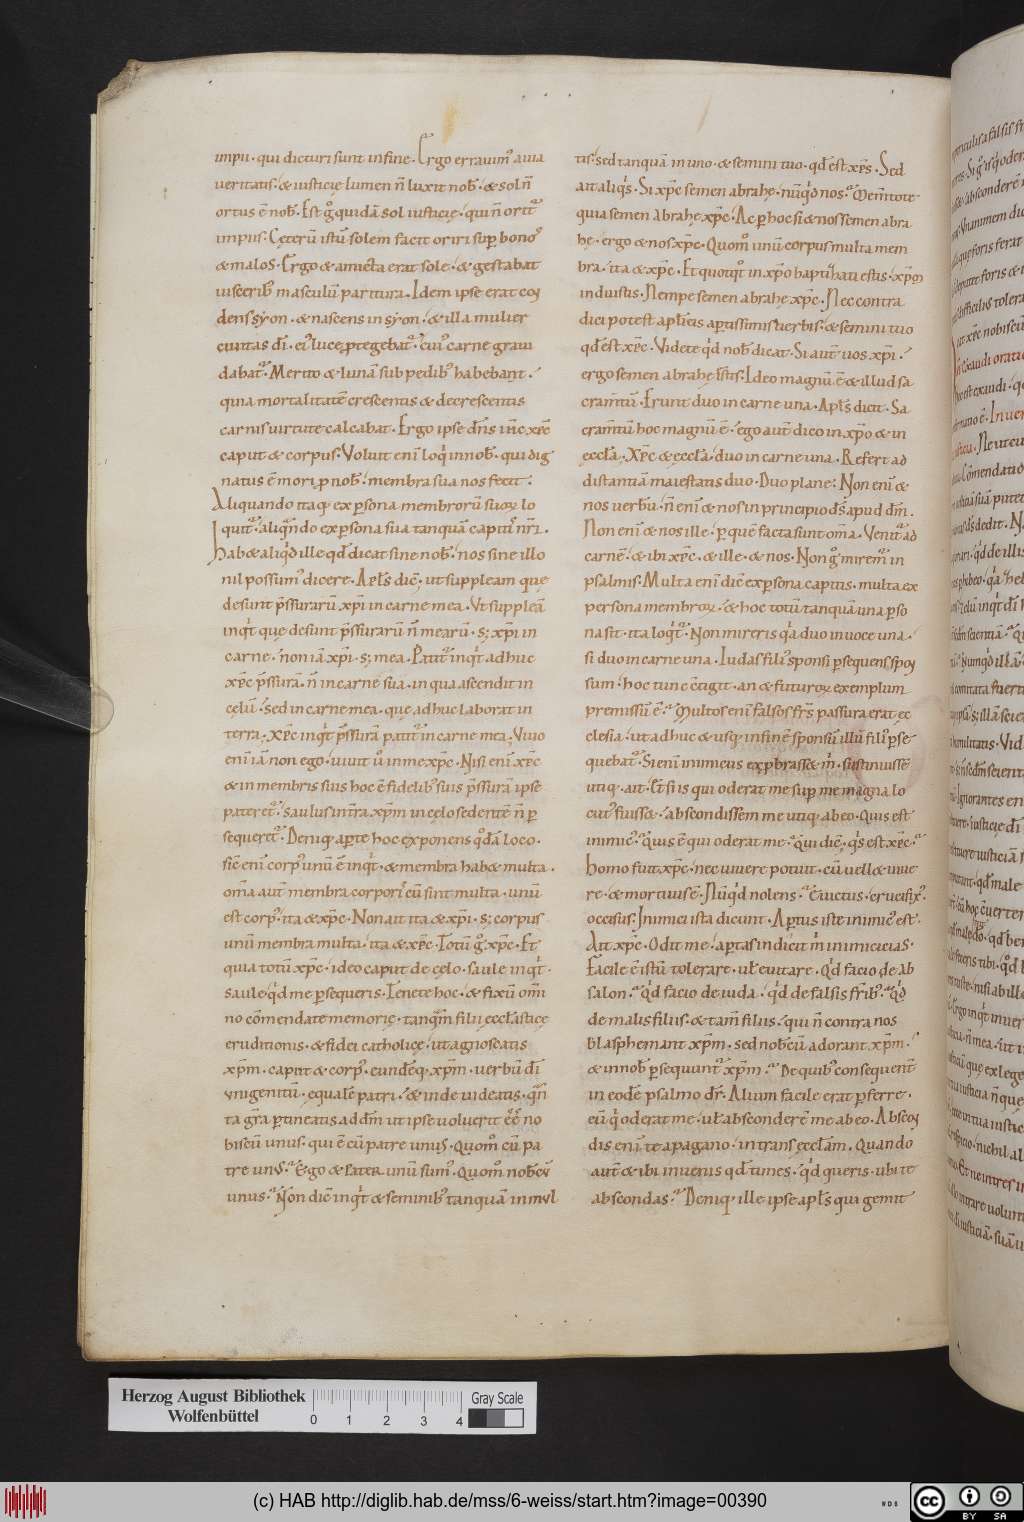 impii · qui dicturi sunt in fine · Ergo erravimꝰ a via
veritatis · & iusticię lumen n̄ luxit nob̄ · & sol n̄
ortus ē nob̄ · Est g̊ quidā sol iusticię · qui n̄ oritᷣ
impiis · Cęterū istū solem facit oriri sup bonoꝰ
& malos · Ergo & amicta erat sole · & gestabat
visceribꝰ masculū paritura · Idem ipse erat coɳ
dens syon · & nascens in syon · & illa mulier
civitas dī · eiꝰ luce ꝓtegebatᷣ · cuiꝰ carne gravi
dabatᷣ · Merito & lunā sub pedibꝰ habebant ·
quia mortalitatē crescentis & decrescentis
carnis virtute calcabat · Ergo ipse dn̄s ih̄c xp̄c
caput & corpus · Voluit eni loq̇ in nob̄ · qui dig
natus ē mori ꝓ nob̄ · membra sua nos fecit ·
Aliquando itaq; ex ꝑsona membrorū suoꝝ lo
quitᷣ · aliqn̄do ex ꝑsona sua tanquā capitiᷤ nr̄i ·
Hab& aliq̇d ille qd̄ dicat sine nob̄ · nos sine illo
nil possumꝰ dicere · Apl̄s dic̄ · ut suppleam quę
desunt p̄ssurarū xp̄i in carne mea · Ut suppleā
inq̇t que desunt p̄ssurarū n̄ mearū · s; xp̄i in
carne · non iā xp̄i · s; mea · Patitᷣ inq̇t adhuc
xp̄c p̄ssurā · n̄ in carne sua · in qua ascendit in
cęlū · sed in carne mea · que adhuc laborat in
terra · xp̄c inq̇t p̄ssurā patitᷣ in carne mea · Vivo
eni iā non ego · vivit v̊ in me xp̄c · Nisi eni xp̄c
& in membris suis hoc ē fidelibꝰ suis p̄ssurā ipse
pateretᷣ · saulus in tr̄a xp̄m in cęlo sedentē n̄ ꝑ
sequeretᷣ · Deniq; aꝑte hoc exponens q̊dā loco ·
sic̄ eni corpꝰ unū ē inq̇t · & membra hab& multa ·
om̄a aut̄ membra corporiᷤ cū sint multa · unū
est corpꝰ · ita & xp̄c · Non ait ita & xp̄i · s; corpus
unū membra multa · ita & xp̄c · Totū g̊ xp̄c · Et
quia totū xp̄c · ideo caput de cęlo · saule inq̇t ·
saule q̇d me ꝑsequeris · Tenete hoc · & fixū om̄i
no cōmendate memorię · tanq̄m filii eccl̄asticę
eruditionis · & fidei catholicę · ut agnoscatis
xp̄m · caput & corpꝰ · eundēq; xp̄m · verbū dī
unigenitū · equalē patri · & inde videatis · q̄n
ta gr̄a ꝑtineatis ad dm̄ ut ipse voluerit ēē no
biscū unus · qui ē cū patre unus · Quomº cū pa
tre unus · Ego & Pater unū sumꝰ · Quomº nobcū
unus · Non dic̄ inq̇t & seminibꝰ tanquā in mul
tis · sed tanquā in uno · & semini tuo · qd̄ est xp̄s · Sed
ait aliq̇s · Si xp̄c semen abrahę · nūq̇d nos · Mem̄tote
quia semen abrahę xp̄c · Ac ꝑ hoc si & nos semen abra
hę · ergo & nos xp̄c · Quomº unū corpus multa mem
bra · ita & xp̄c · Et quotqt̊ in xp̄o baptizati estis · xp̄m
induistis · Nempe semen abrahę xp̄c · Nec contra
dici potest apl̄icis aꝑtissimis verbis · & semini tuo
qd̄ est xp̄c · Videte q̇d nob̄ dicat · Si aut̄ vos xp̄i ·
ergo semen abrahę estis · Ideo magnū ē & illud sa
cram̄tū · Erunt duo in carne una · Apl̄s dicit · Sa
cram̄tū hoc magnū ē · ego aut̄ dico in xp̄o & in
eccl̄a · Xp̄c & eccl̄a · duo in carne una · Refert ad
distantiā maiestatis duo · Duo plane · Non eni &
nos verbū · n̄ eni & nos in principio ds̄ apud dm̄ ·
Non eni & nos ille · ꝑ quē facta sunt om̄a · Venitᷣ ad
carnē · & ibi xp̄c · & ille · & nos · Non g̊ miremᷣ in
psalmis · Multa eni dic̄ ex ꝑsona capitis · multa ex
persona membroꝝ · & hoc totū tanquā una ꝑso
na sit · ita loq̇tᷣ · Non mireris q̇a duo in voce una ·
si duo in carne una · Iudas filiꝰ sponsi ꝑsequens spoɳ
sum · hoc tunc c̄tigit · an & futuroꝝ exemplum
premissū ē · Multos eni falsos fr̄s passura erat ec
clesia · ut adhuc & usq; in finē sponsū illū filiꝰ ꝑse
quebatᷣ · Si eni inimicus exp̄brass& m̄ · sustinuissē
utiq; · ait · Et si is qui oderat me sup me magna lo
cutꝰ fuiss& · abscondissem me utiq; ab eo · Quis est
inimicꝰ · quis ē qui oderat me · Qui dic̄ · q̇s est xp̄c ·
homo fuit xp̄c · nec vivere potuit · cū vell& vive
re · & mortuus ē · Nūq̇d nolens · Evictus · crucifixꝰ ·
occisus · Inimici ista dicunt · Aꝑtus iste inimicꝰ est ·
Ait xp̄c · Odit me · aꝑtas indicit m̄ inimicicias ·
Facile ē istū tolerare · ul̄ evitare · Q̇d facio de ab
salon · Q̇d facio de iuda · q̇d de falsis fr̄ibꝰ · Q̇d
de malis filiis · & tam̄ filiis · qui n̄ contra nos
blasphemant xp̄m · sed nobcū adorant xp̄m ·
& in nob̄ ꝑsequuntᷣ xp̄m · De quibꝰ consequent̄
in eodē psalmo dr̄ · Alium facile erat ꝑferre ·
eū q̇ oderat me · ul̄ absconderē me ab eo · Abscoɳ
dis eni te a pagano · intrans eccl̄am · Quando
aut̄ & ibi invenis qd̄ times · q̇d queris · ubi te
abscondas · Deniq; ille ipse apl̄s qui gemit
Herzog August Bibliothek
Wolfenbüttel
0 1 2 3 4
Gray Scale
(c) HAB http://diglib.hab.de/mss/6-weiss/start.htm?image=00390
WDB
cc
BY SA